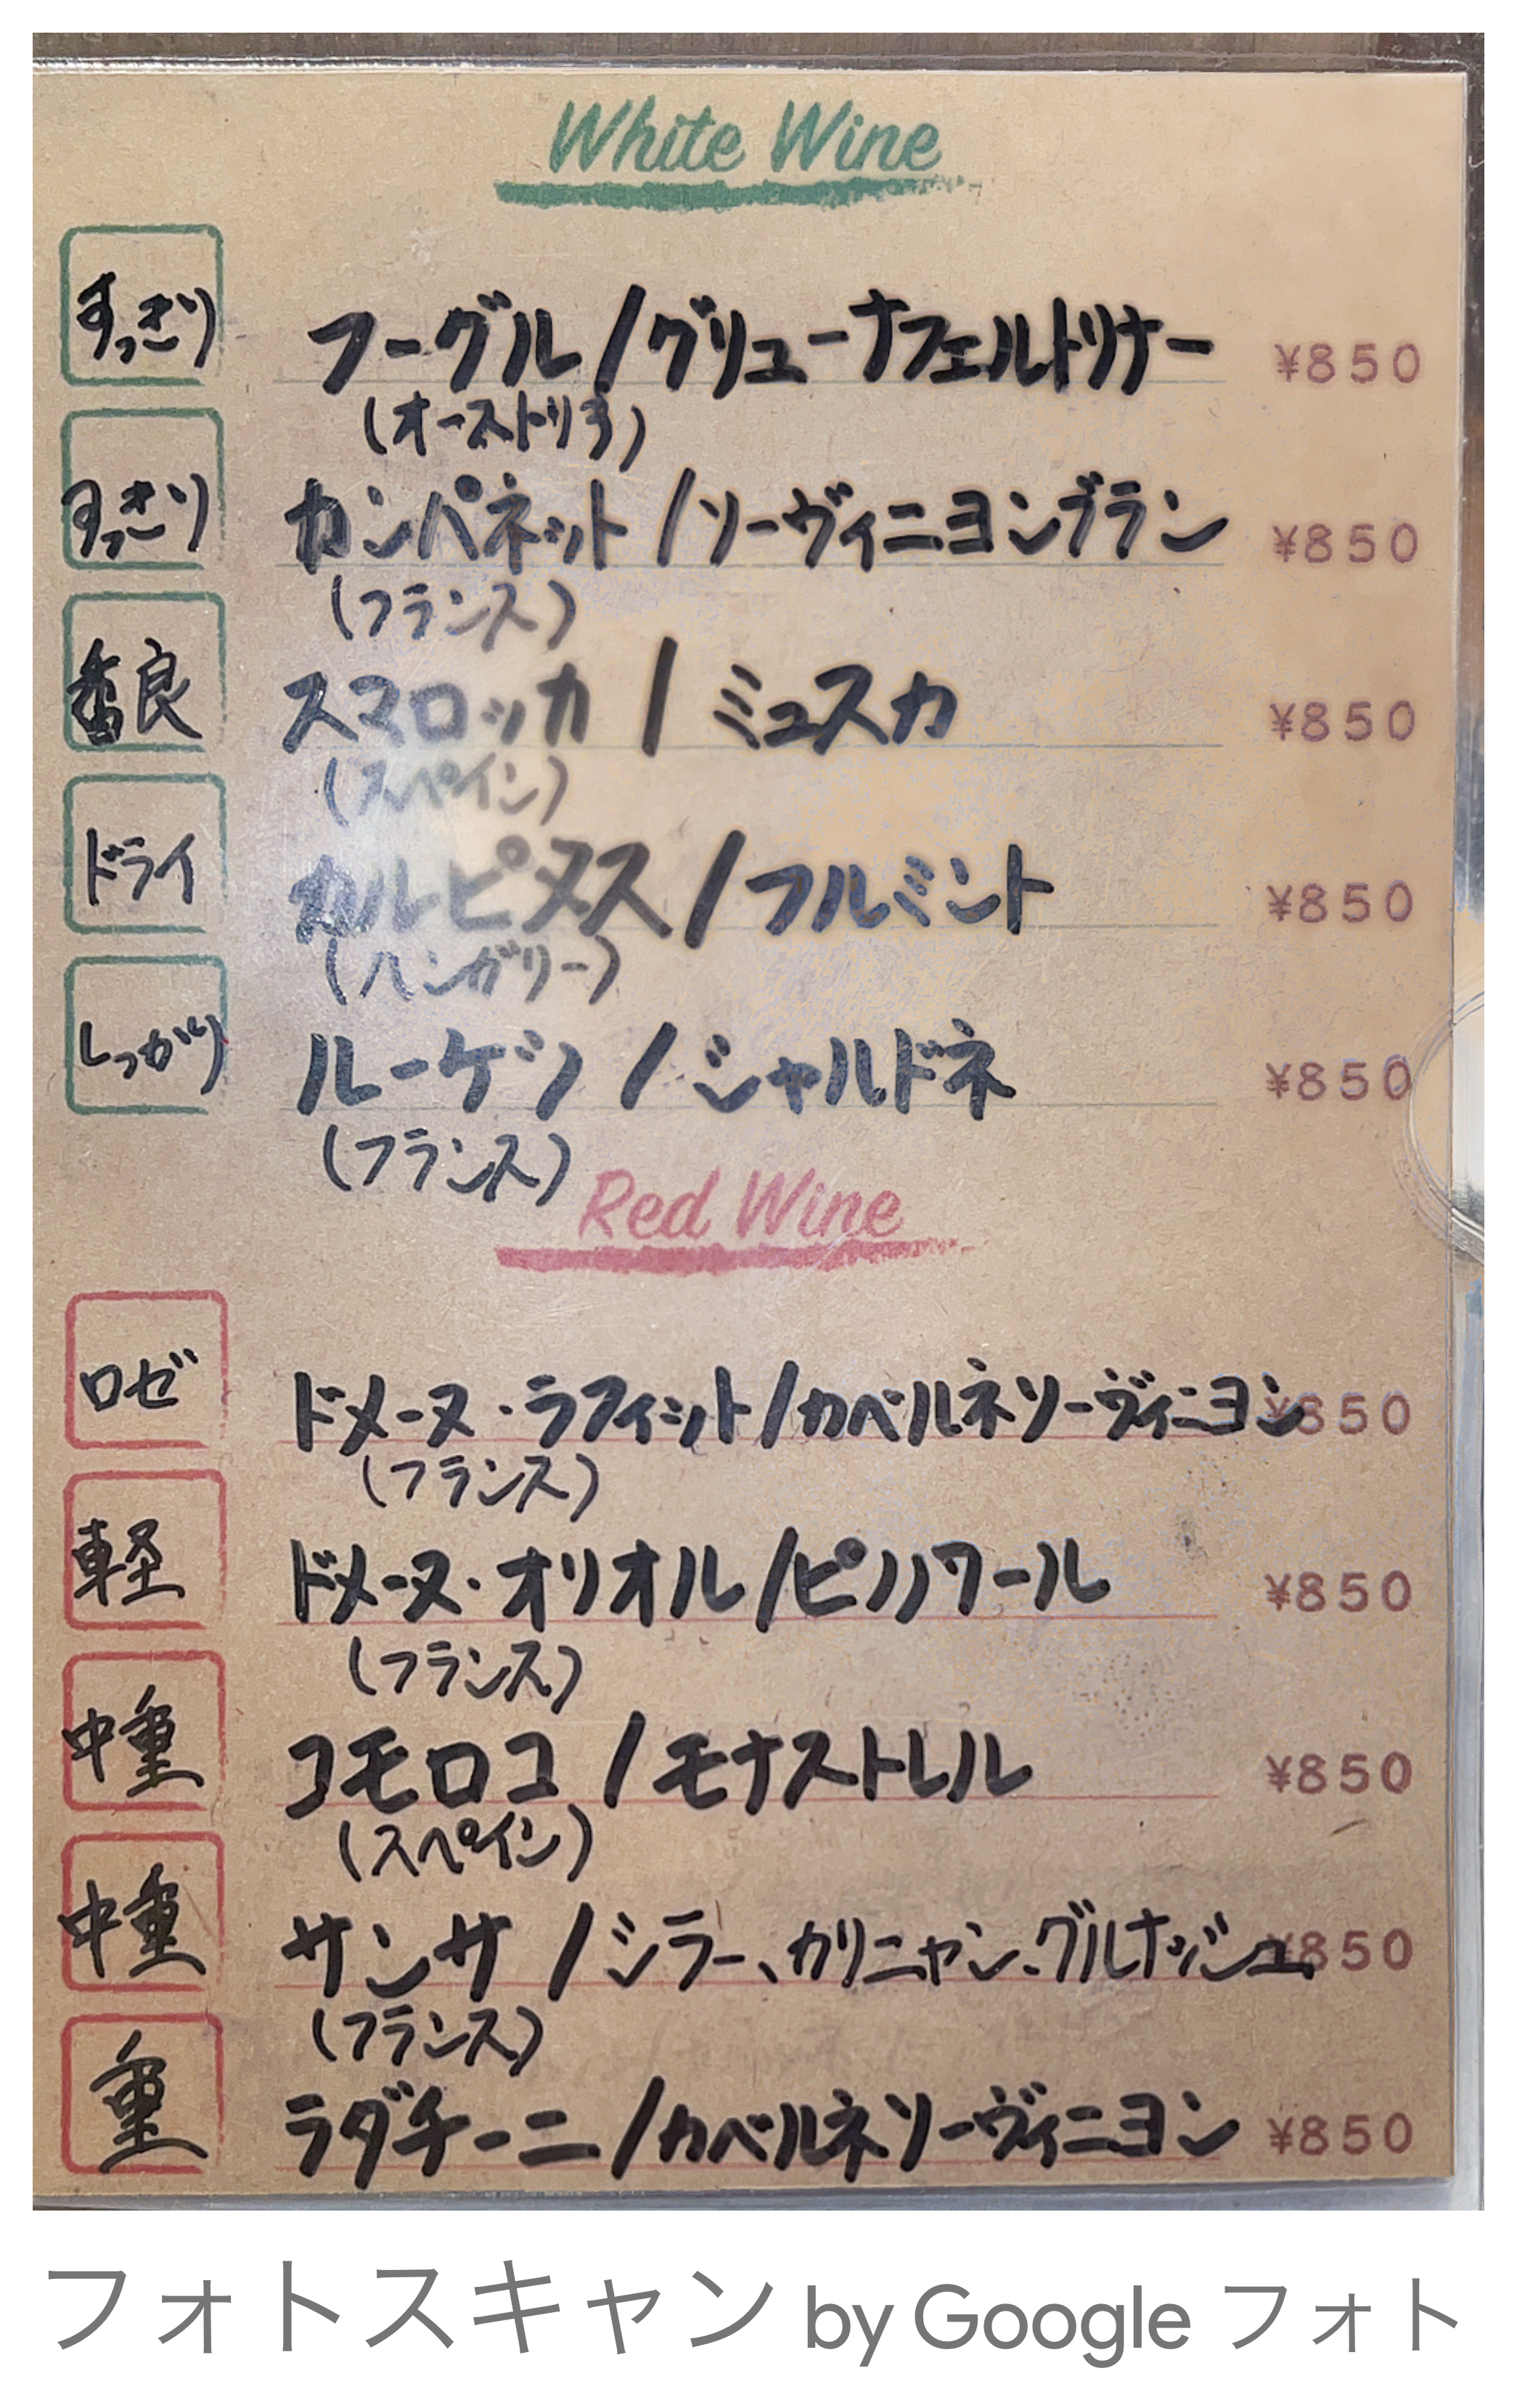 White Wine
すっきり フーグル / グリューナフェルトリナー ¥850
(オーストリア)
すっきり カンパネット / ソーヴィニヨンブラン ¥850
(フランス)
香良 スマロッカ / ミュスカ ¥850
(スペイン)
ドライ カルピヌス / フルミント ¥850
(ハンガリー)
しっかり ルーゲツ / シャルドネ ¥850
(フランス)
Red Wine
ロゼ ドメーヌ・ラフィット / カベルネソーヴィニヨン ¥850
(フランス)
軽 ドメーヌ・オリオル / ピノノワール ¥850
(フランス)
中重 コモロコ / モナストレル ¥850
(スペイン)
中重 サンサ / シラー、カリニャン、グルナッシュ ¥850
(フランス)
重 ラダチーニ / カベルネソーヴィニヨン ¥850
フォトスキャン by Google フォト